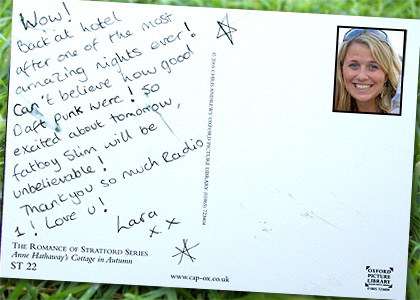 Wow!
Back at hotel
after one of the most
amazing nights ever!
Can't believe how good
Daft punk were! So
excited about tomorrow,
fatboy Slim will be
unbelievable!
Thankyou so much Radio
1! Love u!
Lara
x x
THE ROMANCE OF STRATFORD SERIES
Anne Hathaway's Cottage in Autumn
ST 22
www.cap-ox.co.uk
OXFORD
PICTURE
LIBRARY